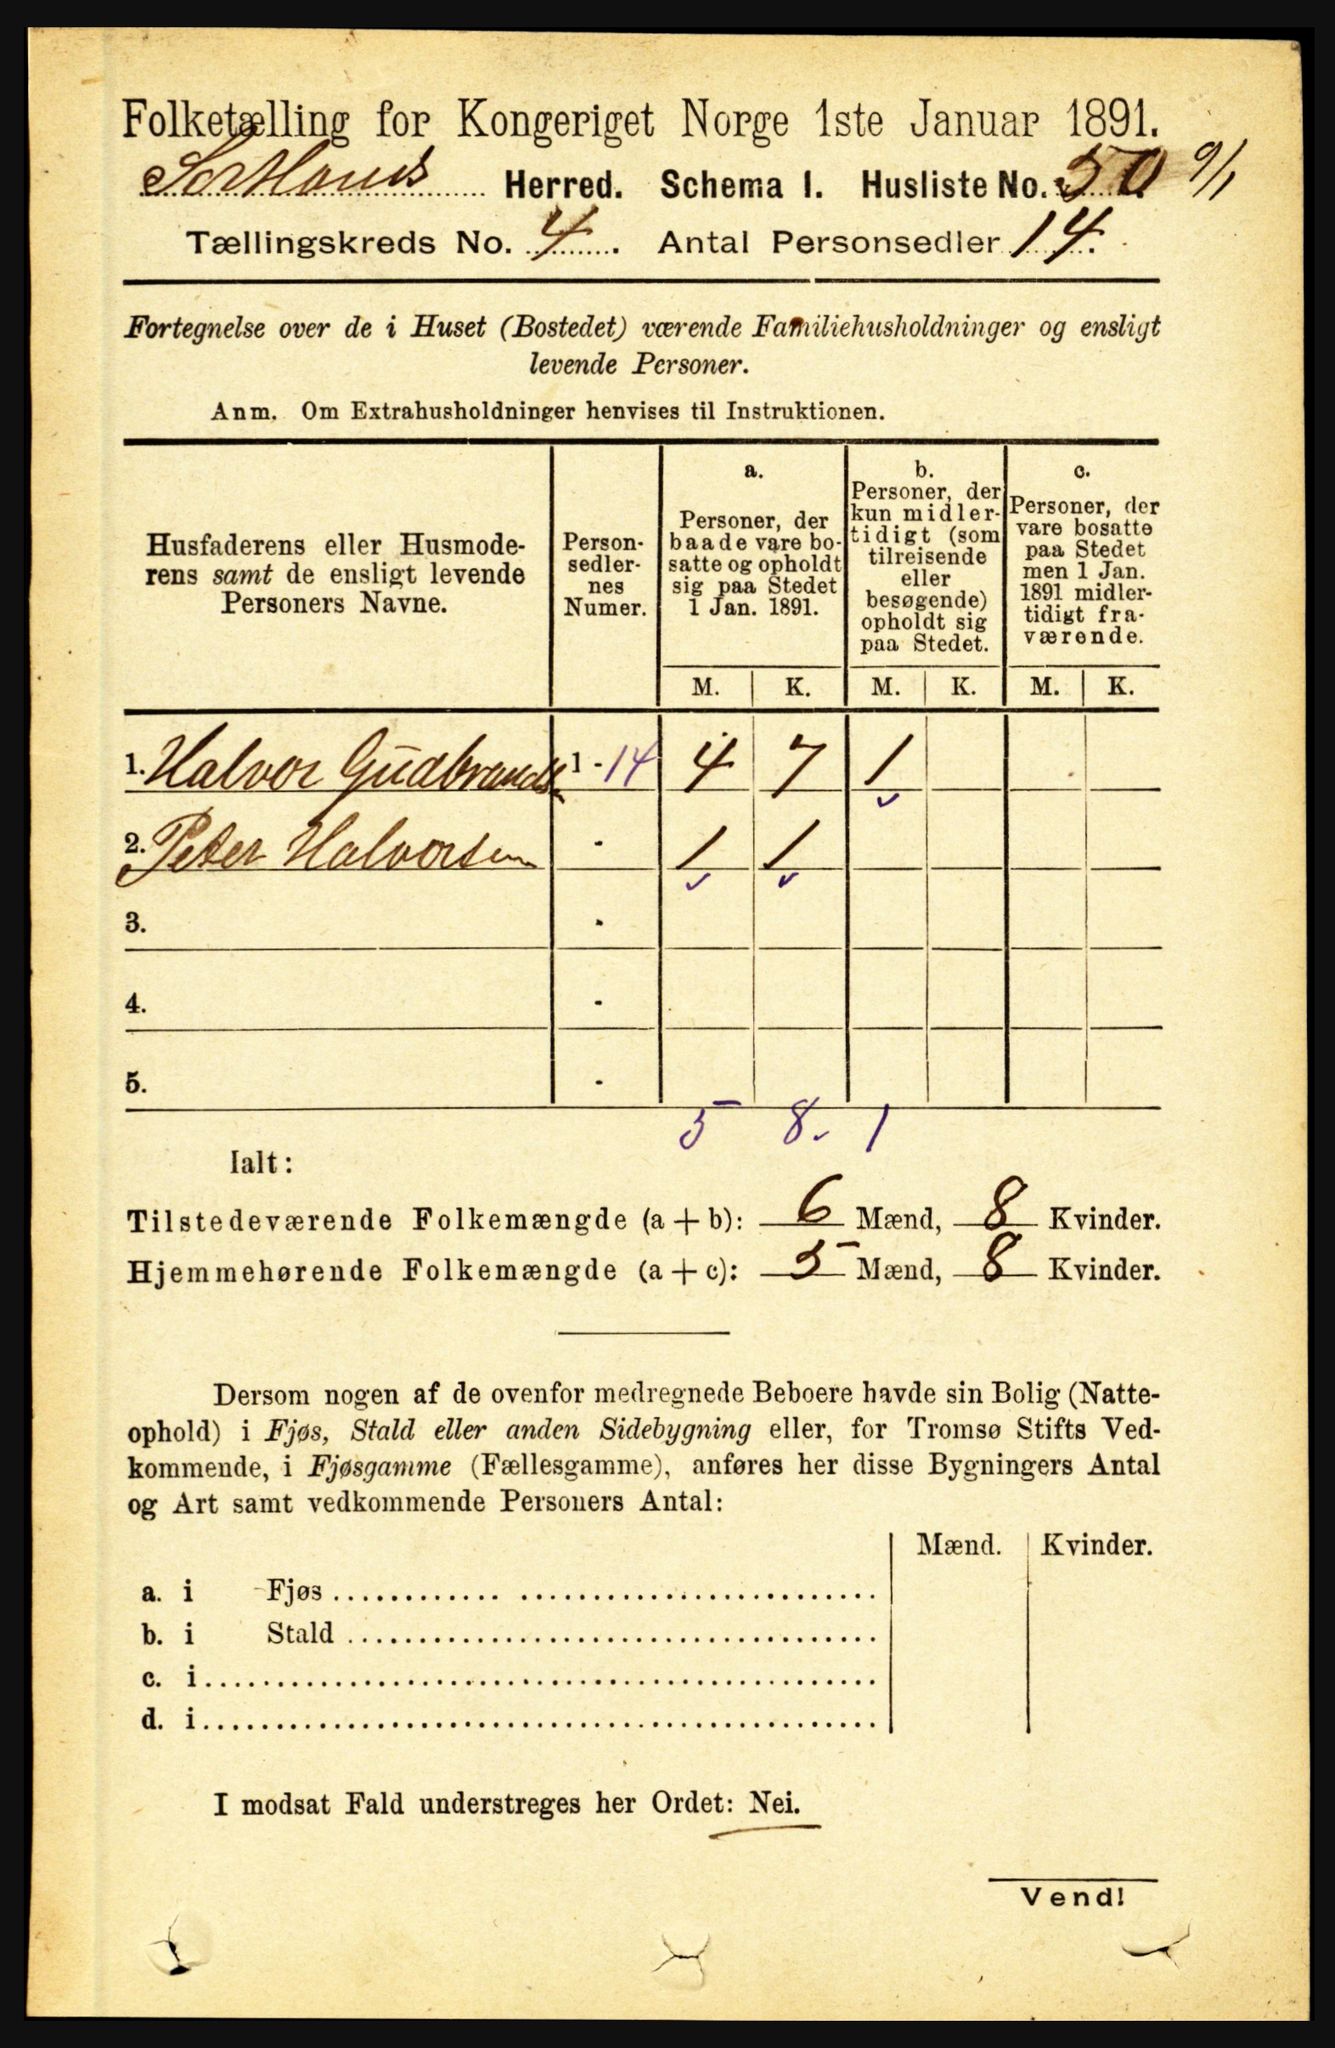 Folketælling for Kongeriget Norge 1ste Januar 1891.
Sortlands Herred. Schema 1. Husliste No. 50 9/1
Tællingskreds No. 4. Antal Personsedler 14.
Fortegnelse over de i Huset (Bostedet) værende Familiehusholdninger og ensligt
levende Personer.
Anm. Om Extrahusholdninger henvises til Instruktionen.
Husfaderens eller Husmode-
rens samt de ensligt levende
Personers Navne.
Person-
sedler-
nes
Numer.
a.
Personer, der
baade vare bo-
satte og opholdt
sig paa Stedet
1 Jan. 1891.
b.
Personer, der
kun midler-
tidigt (som
tilreisende
eller
besøgende)
opholdt sig
paa Stedet.
c.
Personer, der
vare bosatte
paa Stedet
men 1 Jan.
1891 midler-
tidigt fra-
værende.
M. K. M. K. M. K.
1. Halvor Gudbrands 1 - 14 4 7 1
2. Peter Halvorsen - 1 1
3. -
4. -
5. -
5 8. 1
Ialt:
Tilstedeværende Folkemængde (a + b): 6 Mænd, 8 Kvinder.
Hjemmehørende Folkemængde (a + c): 5 Mænd, 8 Kvinder.
Dersom nogen af de ovenfor medregnede Beboere havde sin Bolig (Natte-
ophold) i Fjøs, Stald eller anden Sidebygning eller, for Tromsø Stifts Ved-
kommende, i Fjøsgamme (Fællesgamme), anføres her disse Bygningers Antal
og Art samt vedkommende Personers Antal:
Mænd. Kvinder.
a. i Fjøs
b. i Stald
c. i
d. i
I modsat Fald understreges her Ordet: Nei.
Vend!